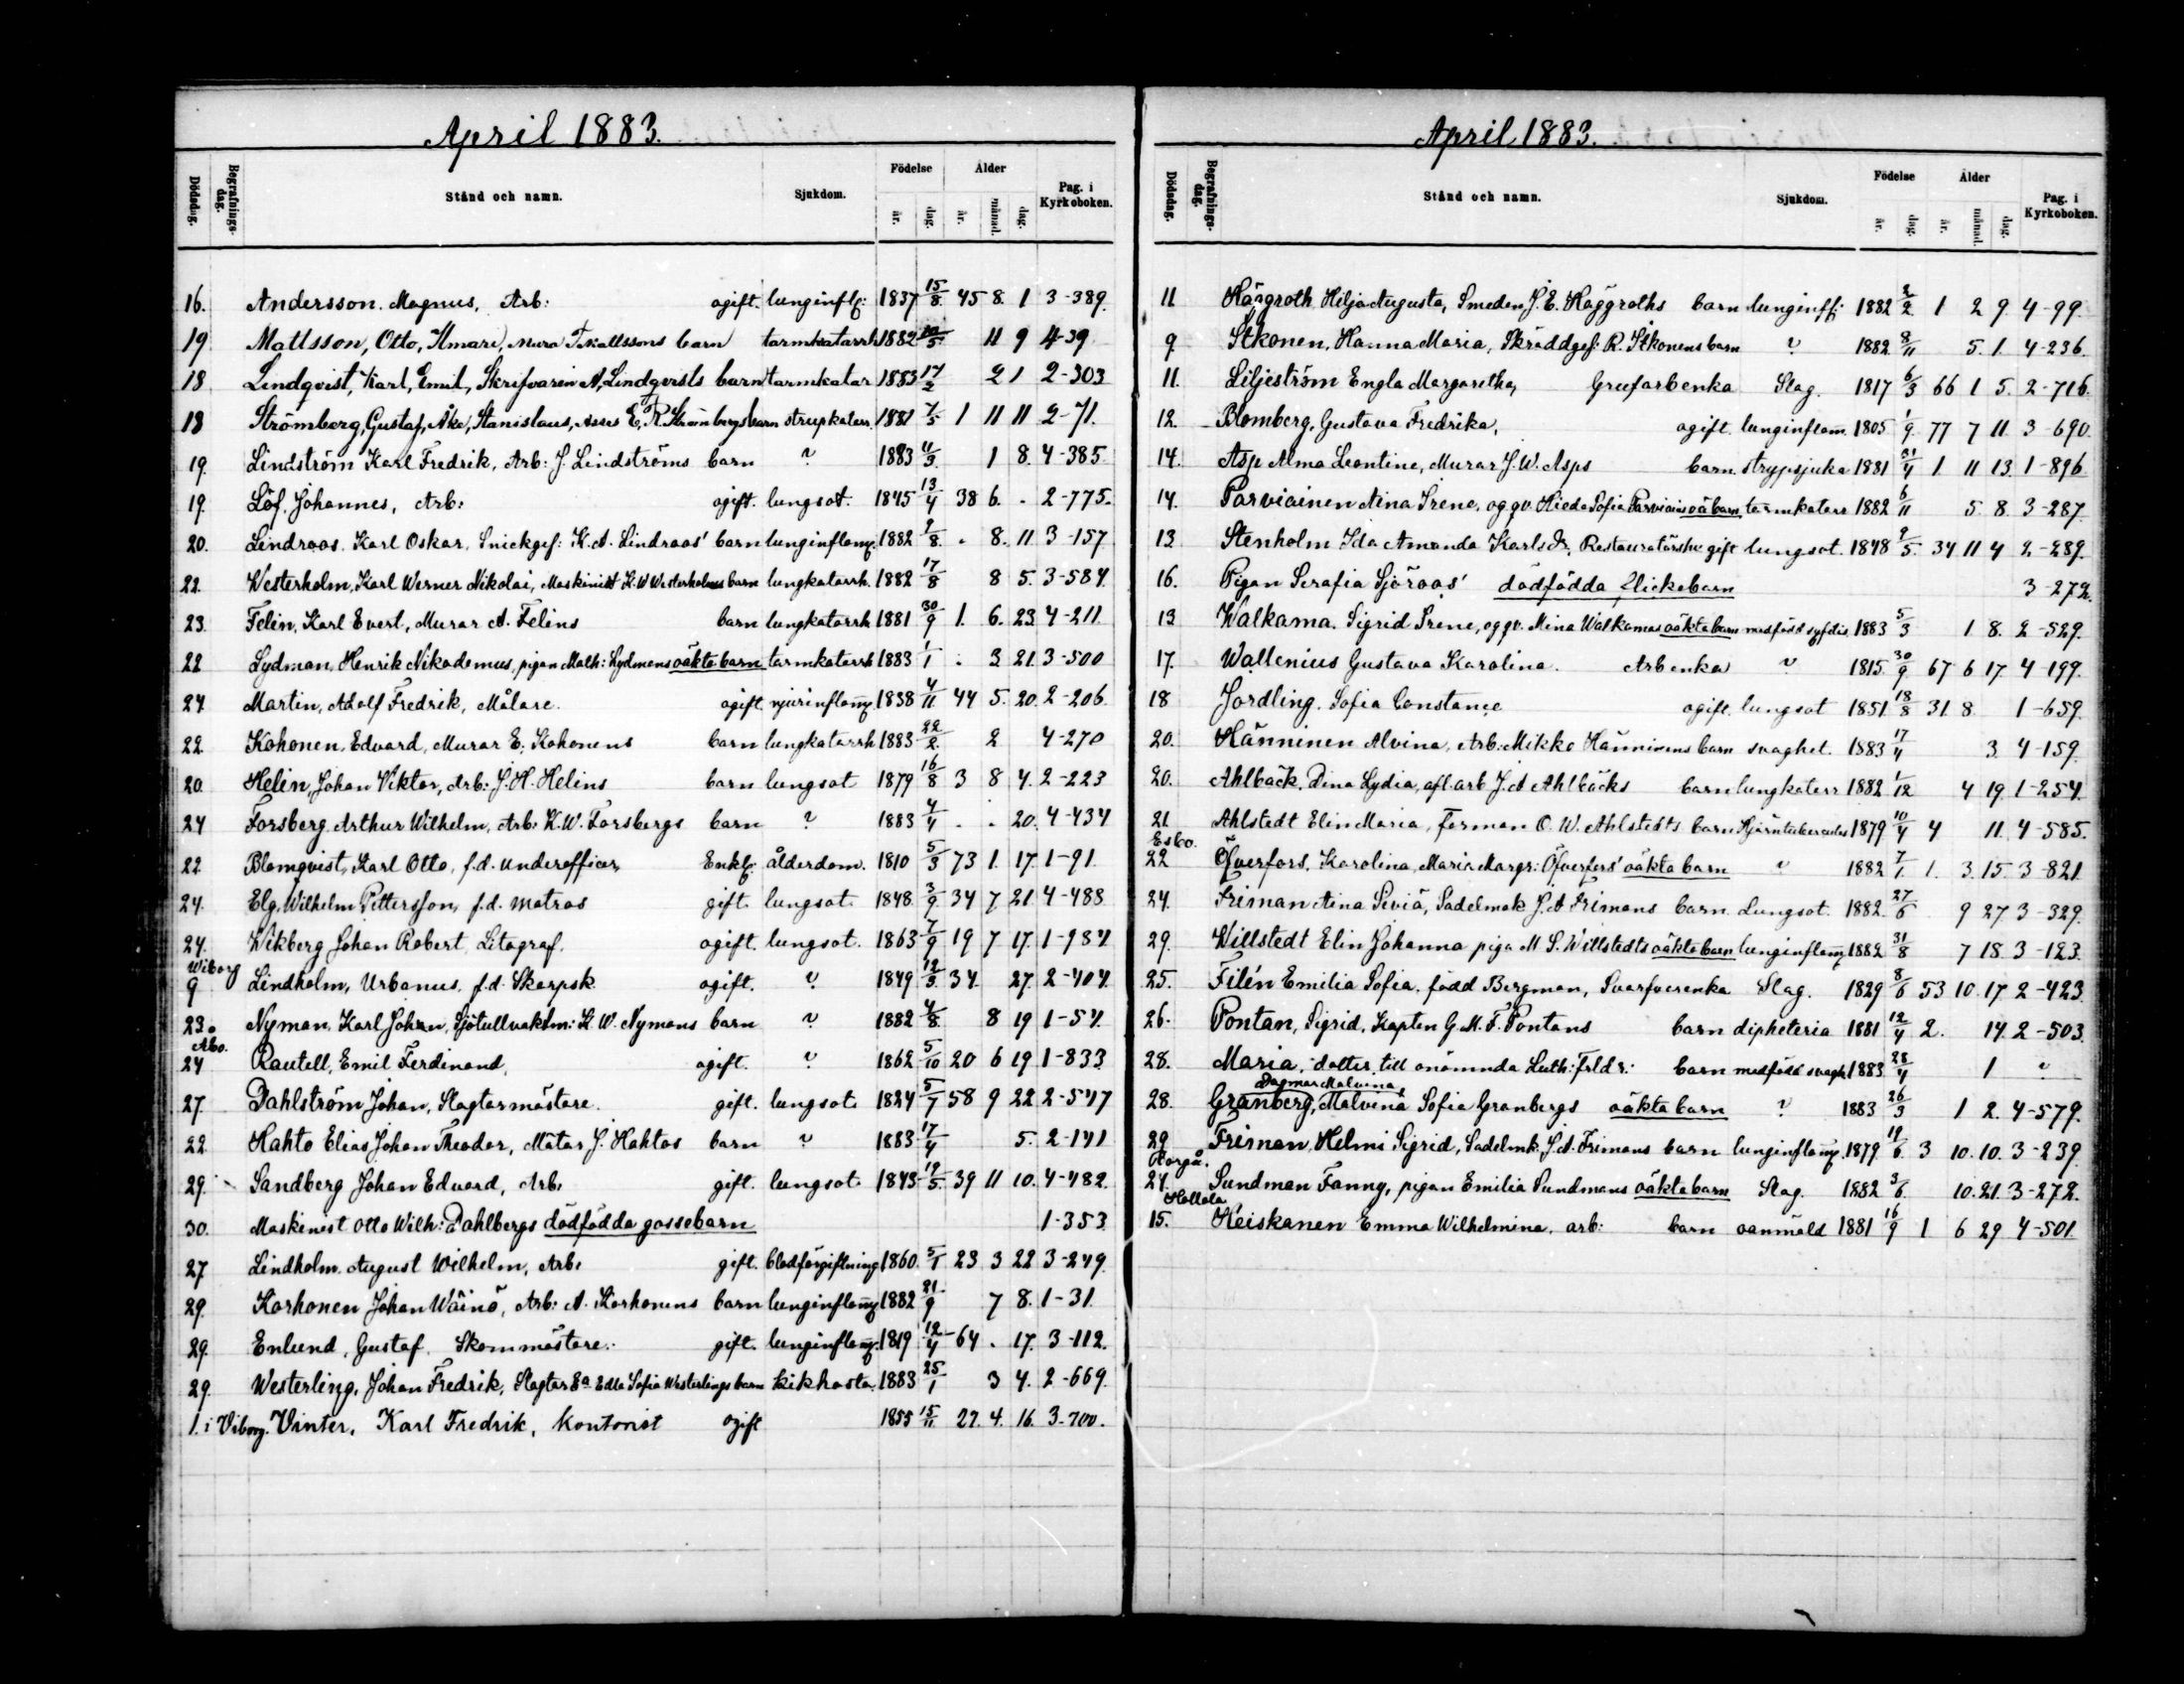 April 1883.
Dödsdag. Begrafningsdag. Stånd och namn. Sjukdom. Födelse år. dag. Ålder år. månad. dag. Pag. i Kyrkoboken.
16. Andersson. Magnus, Arb: ogift. lunginfl: 1837 15/8 45 8 1 3-389.
19 Mattsson, Otto, Ilmari, Mura F. Mattssons barn tarmkatarrh 1882 /5 11 9 4-39
18 Lindqvist, Karl, Emil, Skrifvaren A, Lindqvists barn tarmkatar 1883 17/2 2 1 2-303
18 Strömberg, Gustaf, Åke, Stanislaus, Asses E. R. Strömbergs barn strupkatarr. 1881 7/5 1 11 11 2-71.
19. Lindström Karl Fredrik, Arb: J. Lindströms barn ? 1883 11/3. 1 8. 4-385
19. Löf. Johannes, Arb: ogift. lungsot. 1845 13/4 38 6. - 2-775.
20. Lindroos. Karl Oskar, Snickges: K. A. Lindroos' barn lunginflamm. 1882 9/8. . 8. 11 3-157
22. Westerholm, Karl Werner Nikolai, Maskinist K. W Westerholms barn lungkatarrh. 1882 17/8 8 5. 3-584.
23. Felin, Karl Evert, Murar A. Felins barn lungkatarrh 1881 30/9 1. 6. 23 4-211.
22 Lydman, Henrik Nikodemus, pigan Math: Lydmans oäkta barn tarmkatarrh 1883 1/1 . 3 21. 3-500
24. Martin, Adolf Fredrik, Målare. ogift njurinflamm. 1838 4/11 44 5. 20. 2-206.
22. Kohonen, Edvard, Murar E. Kohonens barn lungkatarrh 1883 22/2. 2 4-270
20. Helin, Johan Viktor, Arb: J. H. Helins barn lungsot 1879 16/8 3 8 4. 2-223
24 Forsberg Arthur Wilhelm, Arb: K. W. Forsbergs barn ? 1883 4/4 . . 20. 4-434
22. Blomqvist, Karl Otto, f.d. underofficer Enkl: ålderdom. 1810 5/3 73 1. 17. 1-91.
24. Elg, Wilhelm Pettersson, f.d. matros gift. lungsot. 1848 3/9 34 7 21. 4-488
24. Wikberg Johan Robert, Litograf. ogift. lungsot. 1863 7/9 19 7 17. 1-984.
Wiborg
9 Lindholm, Urbanus. f.d. Skarpsk. ogift. ? 1849 12/3. 34. 27. 2-404.
23. Nyman. Karl Johan, Sjötullvaktm: K W. Nymans barn ? 1882 4/8. 8 19 1-54.
Åbo.
24 Rautell, Emil Ferdinand, ogift. ? 1862 5/10 20 6 19 1-833
27. Dahlström Johan, Slagtarmästare. gift. lungsot. 1824 5/7 58 9 22 2-547
22. Hahto Elias Johan Theodor, Mätar J. Hahtos barn ? 1883 17/4 5. 2-141
29. Sandberg Johan Edvard, Arb: gift. lungsot. 1843 19/5. 39 11 10. 4-482.
30. Maskinist Otto Wilh: Dahlbergs dödfödda gossebarn 1-353.
27 Lindholm. August Wilhelm, Arb: gift. blodförgiftning 1860. 5/1 23 3 22 3-249.
29. Korhonen Johan Wäinö, Arb: A. Korhonens barn lunginflamm 1882 21/9 7 8. 1-31.
29. Enlund, Gustaf. Skommästare. gift. lunginflamm. 1819 12/4 64 . 17. 3-112.
29. Westerling, Johan Fredrik, Slagtar Ea Edla Sofia Westerlings barn kikhosta. 1883 25/1 3 4. 2-669.
1. i Viborg. Vinter, Karl Fredrik, kontorist ogift 1855 15/11 27. 4. 16. 3-700.
April 1883.
Dödsdag. Begrafningsdag. Stånd och namn. Sjukdom. Födelse år. dag. Ålder år. månad. dag. Pag. i Kyrkoboken.
11 Häggroth Hilja Augusta, Smeden J. E. Häggroths barn lunginfl: 1882 2/2 1 2 9. 4-99.
9. Itkonen, Hanna Maria, Skräddges: R. Itkonens barn ? 1882. 8/11 5. 1. 4-236.
11. Liljeström Engla Margaretha, Slag. 1817 6/3 66 1 5. 2-716.
12. Blomberg, Gustava Fredrika, ogift. lunginflam. 1805 1/9. 77 7 11. 3-690.
14. Asp Alma Leontine, Murar J. W. Asps barn. strypsjuka 1881 31/4 1 11 13. 1-896
14. Parviainen Aina Irene, ogqv. Sofia Parviains oä barn tarmkatarr 1882 6/11 5. 8. 3-287.
13. Stenholm Ida Amanda Karls Dr. Restauratörske gift lungsot. 1848 9/5. 34 11 4 2-289.
16. Pigan Serafia Sjöroos' dödfödda flickebarn 3-272.
13 Walkama. Sigrid Irene, ogqv. Mina Walkamas oäkta barn medfödd syfilis. 1883 5/3 1 8. 2-529.
17. Wallenius Gustava Karolina. Arbenka ? 1815 30/9 67 6 17. 4-199.
18 Jordling. Sofia Constance ogift. lungsot 1851. 18/8 31 8. 1-659.
20. Hänninen Alvina, Arb: Mikko Hänninens barn svaghet. 1883 17/4 3. 4-159.
20. Ahlbäck, Dina Lydia, afl. arb J. A Ahlbäcks barn lungkatarr 1882 1/12 4 19. 1-254.
21 Ahlstedt Elin Maria, forman O. W. Ahlstedts barn Hjärntubercules 1879 10/4 4 11. 4-585.
Esbo.
22 Öfverfors, Karolina, Maria Margr: Öfverfors' oäkta barn ? 1882 7/1 1. 3. 15. 3-821.
24. Friman Aina Siviä, Sadelmak J. A Frimans barn. Lungsot. 1882. 27/6 9 27 3-329.
29. Willstedt Elin Johanna piga M S. Willstedts oäkta barn lunginflamm. 1882 31/8 7 18. 3-123.
25. Filén Emilia Sofia, född Bergman, Svarfvarenka Slag. 1829 8/6 53 10. 17 2-423.
26. Pontan, Sigrid, Kapten G. M. F. Pontans barn dipheteria 1881 12/4 2. 14. 2-503.
28. Maria, dotter till onämnda Luth: frldr: barn medfödd svagh 1883 28/4 1 ?
Dagmar Malvina
28. Granberg, Malvina Sofia Granbergs oäkta barn ? 1883 26/3 1 2. 4-579.
29. Friman, Helmi Sigrid, Sadelmk J. A. Frimans barn lunginflamm. 1879 19/6 3 10. 10. 3-239.
Borgå.
24. Sundman Fanny, pigan Emilia Sundmans oäkta barn Slag. 1882 3/6. 10. 21. 3-272.
Hollola
15. Heiskanen Emma Wilhelmina. arb: barn oanmäld 1881 16/9 1 6 29 4-501.